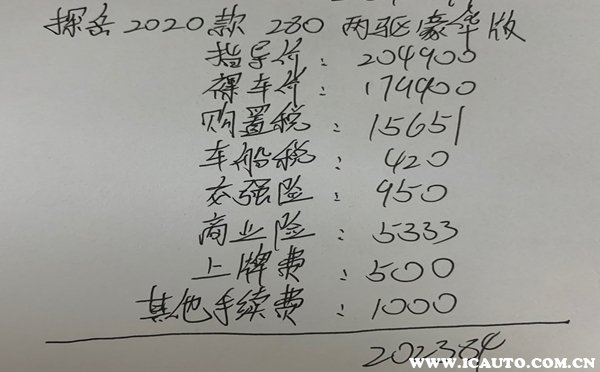 探岳2020款 280 两驱豪华版
指导价：204900
裸车价：179900
购置税：15651
车船税：420
交强险：950
商业险：5333
上牌费：500
其他手续费：1000
202384
www.icauto.com.cn